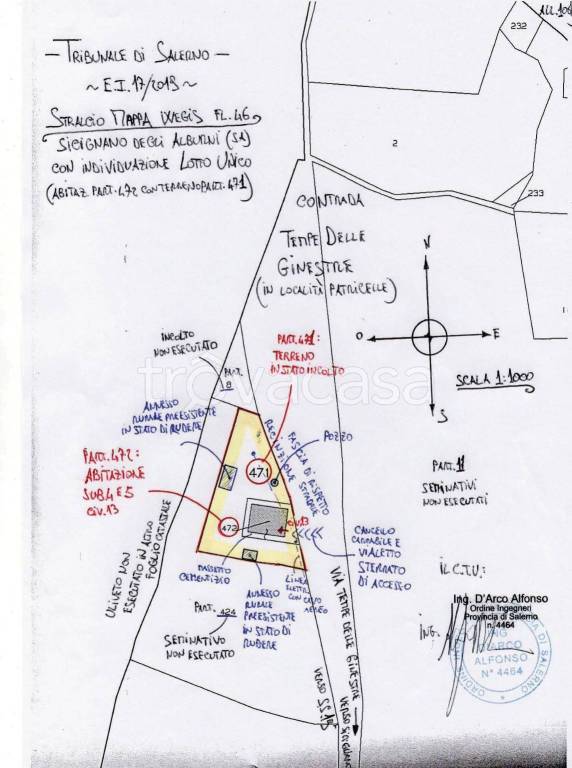 - TRIBUNALE DI SALERNO -
~ E.I. 17/2013 ~
STRALCIO MAPPA WEGIS FL. 46
SICIGNANO DEGLI ALBURNI (SA)
CON INDIVIDUAZIONE LOTTO UNICO
(ABITAZ. PART. 472 CON TERRENO PART. 471)
232
2
233
CONTRADA
TEMPE DELLE
GINESTRE
(IN LOCALITÀ PATRICELLE)
N
O
E
S
SCALA 1:1000
INCOLTO
NON ESECUTATO
PART.
8
PART. 471:
TERRENO
IN STATO INCOLTO
trovacasa
ANNESSO
RURALE PREESISTENTE
IN STATO DI RUDERE
FASCIA DI RISPETTO
RECINZIONE STRADALE
POZZO
PART. 472:
ABITAZIONE
SUB. 4 E 5
CIV. 13
471
472
CIV. 13
PART. 11
SEMINATIVI
NON ESECUTATI
CANCELLO
CARRABILE E
VIALETTO
STERRATO
DI ACCESSO
ULIVETO NON
ESECUTATO IN ALTRO
FOGLIO CATASTALE
MASSETTO
CEMENTIZIO
ANNESSO
RURALE
PREESISTENTE
IN STATO DI
RUDERE
LINEA
ELETTR.
CON CAVO
AEREO
PART. 424
SEMINATIVO
NON ESECUTATO
VIA TEMPE DELLE GINESTRE
VERSO SICIGNANO
IL C.T.U.:
Ing. D'Arco Alfonso
Ordine Ingegneri
Provincia di Salerno
n. 4464
ING.
ING
D'ARCO
ALFONSO
N° 4464